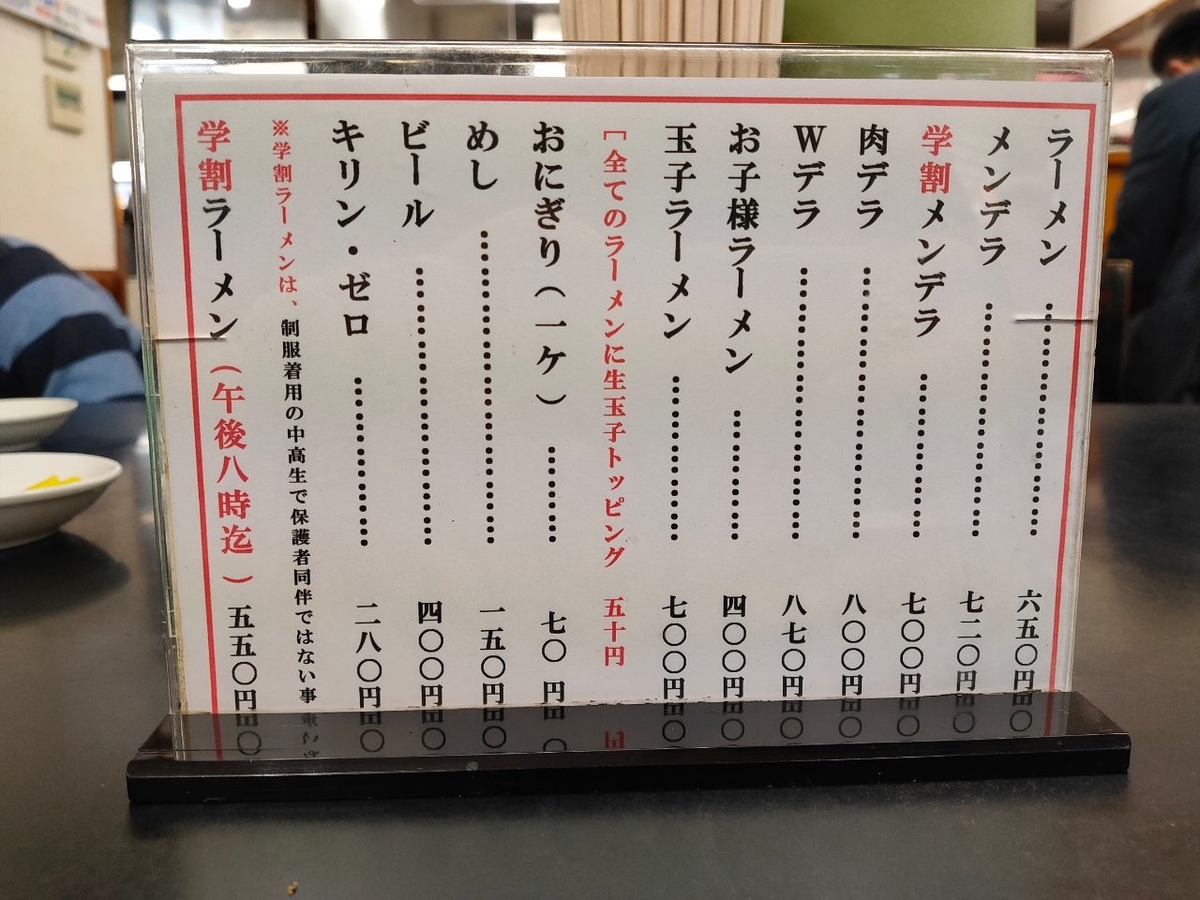 ラーメン…………六五〇円
メンデラ…………七二〇円
学割メンデラ…………七〇〇円
肉デラ…………八〇〇円
Wデラ…………八七〇円
お子様ラーメン…………四〇〇円
玉子ラーメン…………七〇〇円
[全てのラーメンに生玉子トッピング 五十円
おにぎり(一ケ)…………七〇円
めし…………一五〇円
ビール…………四〇〇円
キリン・ゼロ…………二八〇円
※学割ラーメンは、制服着用の中高生で保護者同伴ではない事
学割ラーメン(午後八時迄)五五〇円